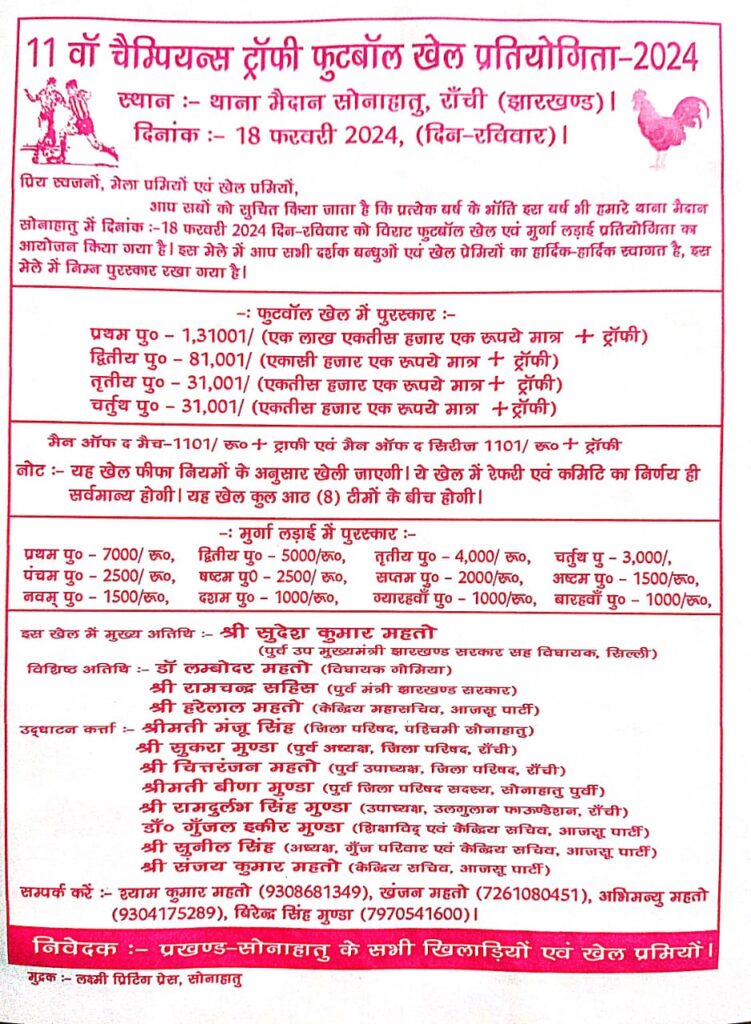 11 वॉ चैम्पियन्स ट्रॉफी फुटबॉल खेल प्रतियोगिता-2024
स्थान :- थाना मैदान सोनाहातु, राँची (झारखण्ड)।
दिनांक :- 18 फरवरी 2024, (दिन-रविवार)।
प्रिय स्वजनों, मेला प्रमियों एवं खेल प्रमियों,
आप सबों को सुचित किया जाता है कि प्रत्येक बर्ष के भाँति इस बर्ष भी हमारे थाना मैदान
सोनाहातु में दिनांक :-18 फरवरी 2024 दिन-रविवार को विराट फुटबॉल खेल एवं मुर्गा लड़ाई प्रतियोगिता का
आयोजन किया गया है। इस मेले में आप सभी दर्शक बन्धुओं एवं खेल प्रेमियों का हार्दिक-हार्दिक स्वागत है, इस
मेले में निम्न पुरस्कार रखा गया है।
-: फुटवॉल खेल में पुरस्कार :-
प्रथम पु० - 1,31001/ (एक लाख एकतीस हजार एक रूपये मात्र + ट्रॉफी)
द्वितीय पु० - 81,001/ (एकासी हजार एक रूपये मात्र + ट्रॉफी)
तृतीय पु० - 31,001/ (एकतीस हजार एक रूपये मात्र + ट्रॉफी)
चर्तुथ पु० - 31,001/ (एकतीस हजार एक रूपये मात्र + ट्रॉफी)
मैन ऑफ द मैच-1101/ रू० + ट्राफी एवं मैन ऑफ द सिरीज 1101/ रू० + ट्रॉफी
नोट :- यह खेल फीफा नियमों के अनुसार खेली जाएगी। ये खेल में रेफरी एवं कमिटि का निर्णय ही
सर्वमान्य होगी। यह खेल कुल आठ (8) टीमों के बीच होगी।
-: मुर्गा लड़ाई में पुरस्कार :-
प्रथम पु० - 7000/ रू०, द्वितीय पु० - 5000/रू०, तृतीय पु० - 4,000/ रू०, चर्तुथ पु - 3,000/,
पंचम पु० - 2500/ रू०, षष्टम पु0 - 2500/ रू०, सप्तम पु० - 2000/रू०, अष्टम पु० - 1500/रू०,
नवम् पु० - 1500/रू०, दशम पु० - 1000/रू०, ग्यारहवाँ पु० - 1000/रू०, बारहवाँ पु० - 1000/रू०,
इस खेल में मुख्य अतिथि :- श्री सुदेश कुमार महतो
(पुर्व उप मुख्यमंत्री झारखण्ड सरकार सह विघायक, सिल्ली)
विशिष्ट अतिथि :- डॉ लम्बोदर महतो (विघायक गोमिया)
श्री रामचन्द्र सहिस (पुर्व मंत्री झारखण्ड सरकार)
श्री हरेलाल महतो (केन्द्रिय महासचिव, आजसू पार्टी)
उद्घाटन कर्त्ता :- श्रीमती मंजू सिंह (जिला परिषद, पश्चिमी सोनाहातु)
श्री सुकरा मुण्डा (पुर्व अध्यक्ष, जिला परिषद, राँची)
श्री चित्तरंजन महतो (पुर्व उपाघ्यक्ष, जिला परिषद, राँची)
श्रीमती बीणा मुण्डा (पुर्व जिला परिषद सदस्य, सोनाहातु पुर्वी)
श्री रामदुर्लभ सिंह मुण्डा (उपाध्यक्ष, उलगुलान फाऊण्डेशन, राँची)
डॉ० गुँजल इकीर मुण्डा (शिक्षाविद् एवं केन्द्रिय सचिव, आजसू पार्टी)
श्री सुनील सिंह (अध्यक्ष, गुँज परिवार एवं केन्द्रिय सचिव, आजसू पार्टी)
श्री संजय कुमार महतो (केन्द्रिय सचिव, आजसू पार्टी)
सम्पर्क करें :- श्याम कुमार महतो (9308681349), खंजन महतो (7261080451), अभिमन्यु महतो
(9304175289), बिरेन्द्र सिंह मुण्डा (7970541600)।
निवेदक :- प्रखण्ड-सोनाहातु के सभी खिलाड़ियों एवं खेल प्रमियों।
मुद्रक :- लक्ष्मी प्रिटिंग प्रेस, सोनाहातु